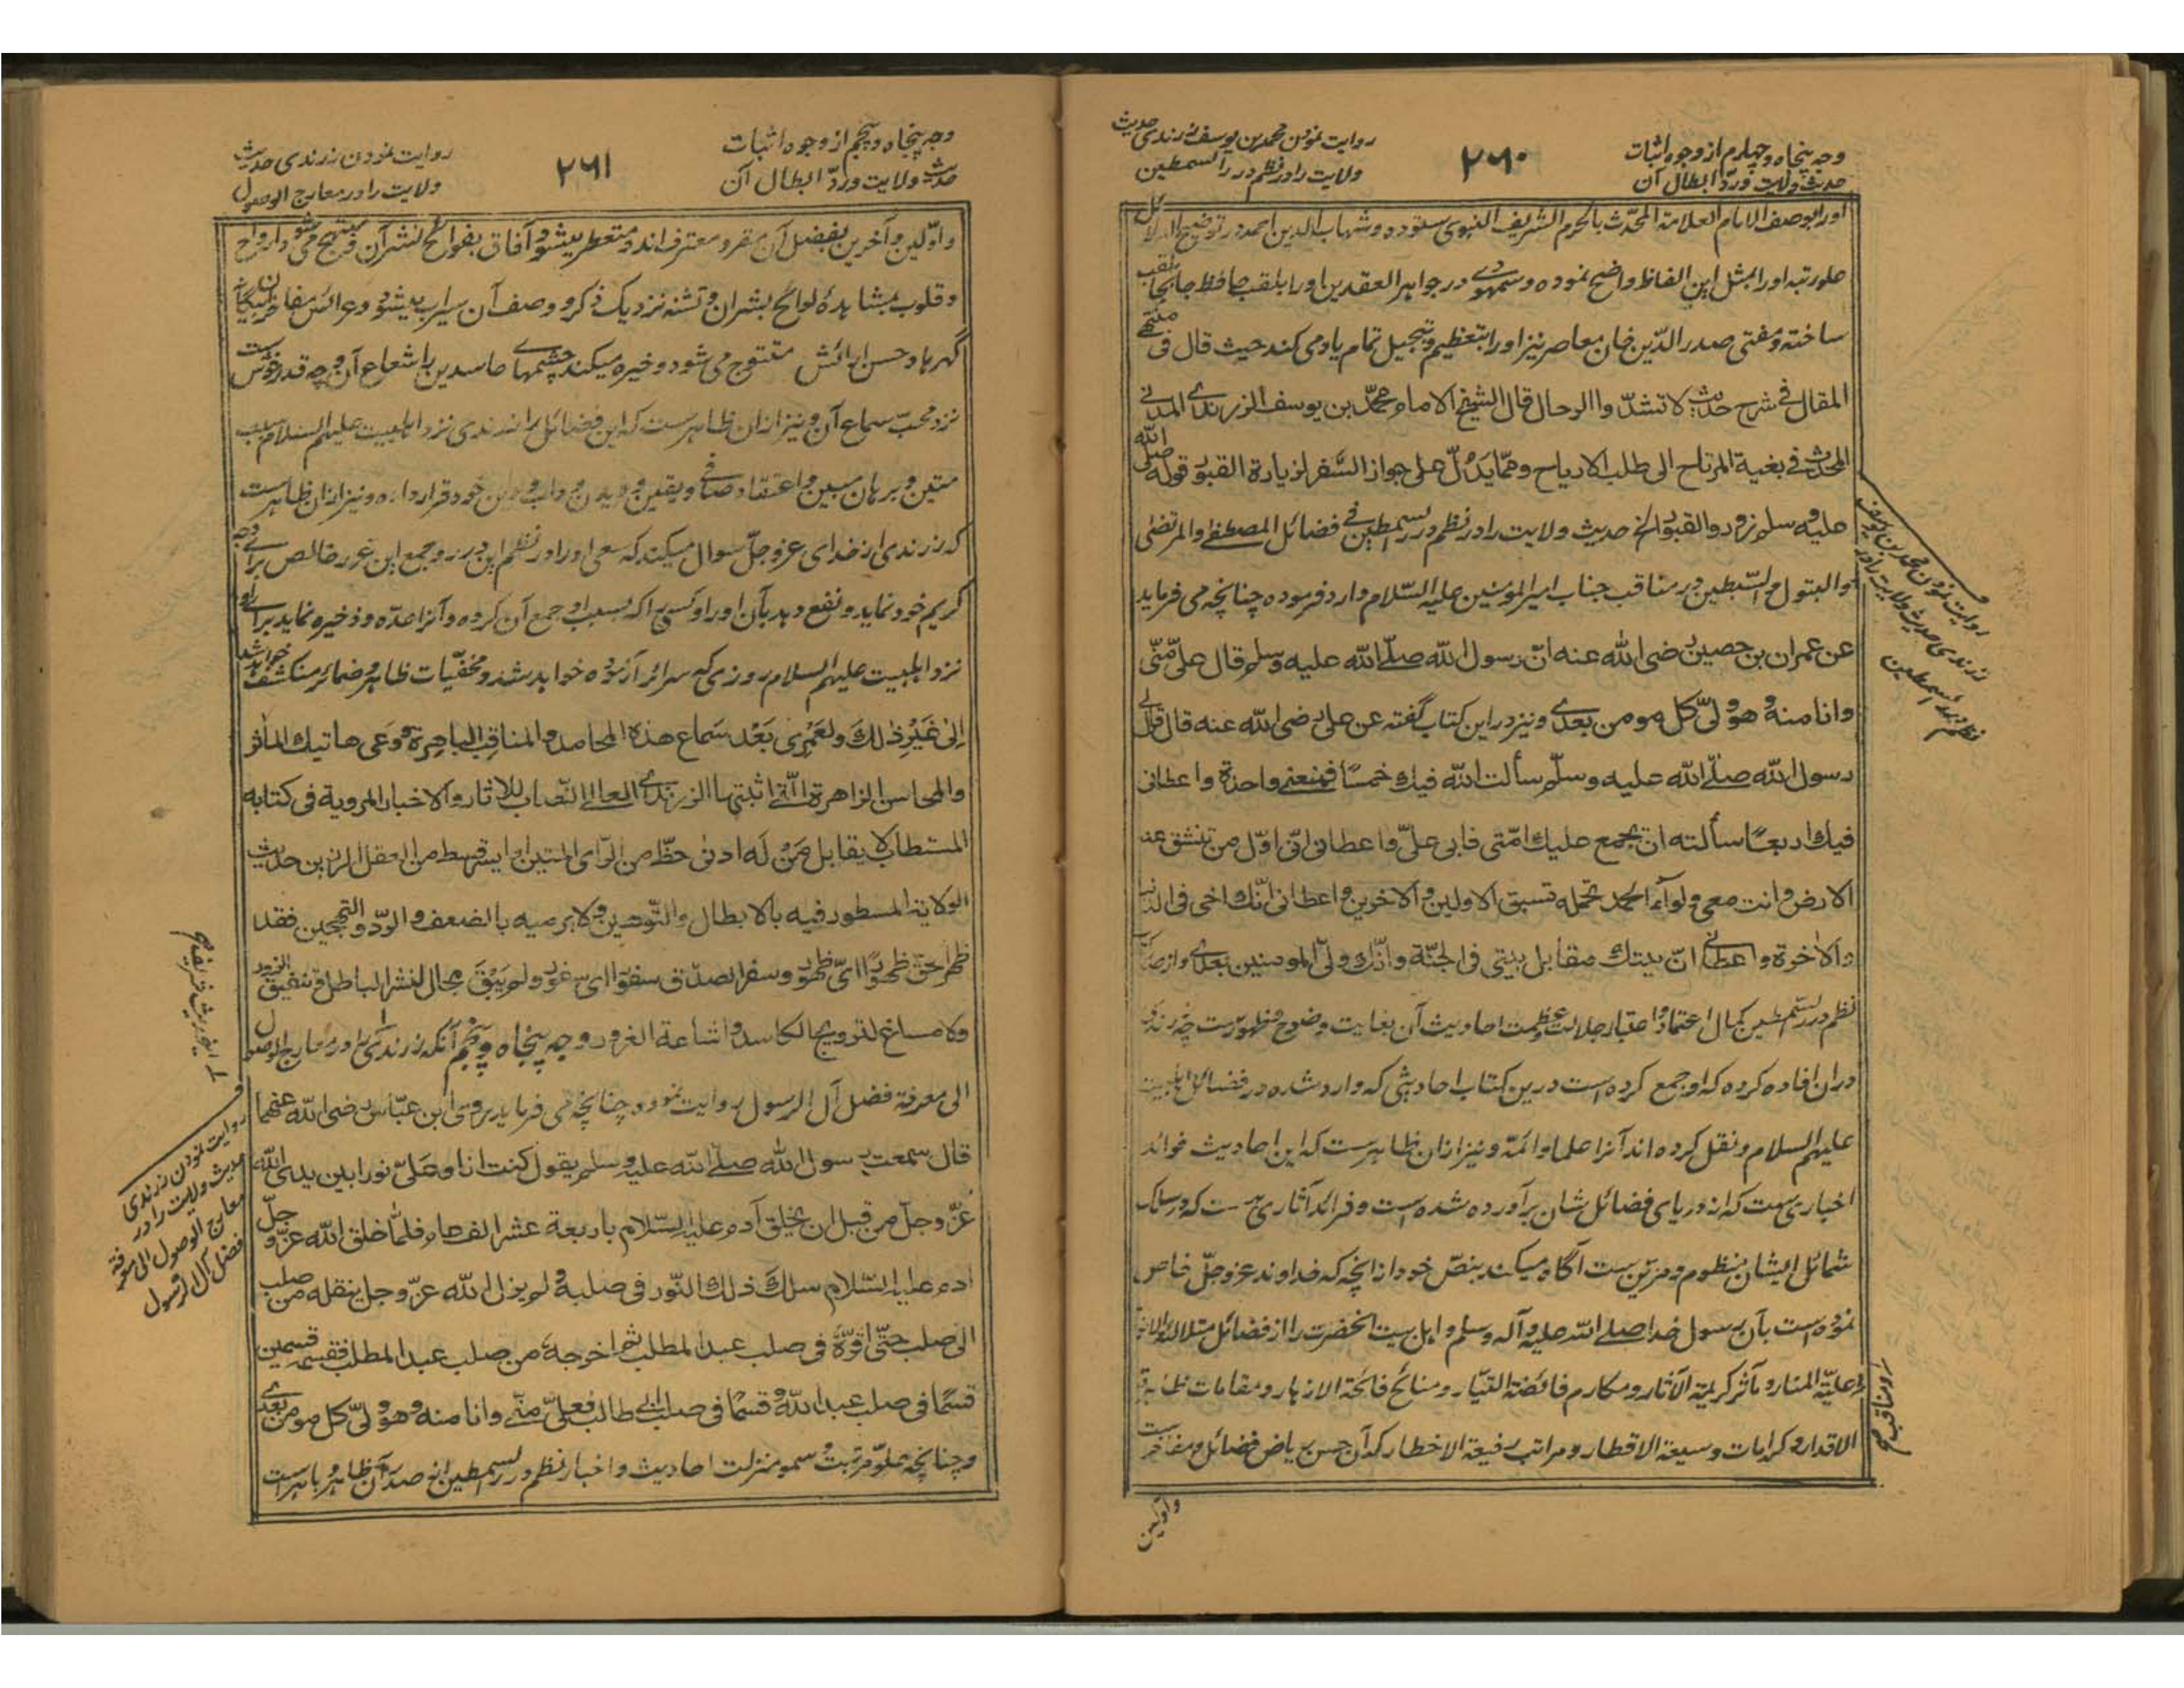 وجه پنجاه و چهارم از وجوه اثبات
حدیث ولایت و ردّ ابطال آن
۲۶۰
روایت نمودن محمد بن یوسف زرندی حدیث
ولایت را در نظم درر السمطین
اورا بوصف الامام العلامة المحدّث بالحرم الشریف النبوی ستوده و شهاب الدین احمد در توضیح الدلائل
علو رتبه اورا بمثل این الفاظ واضح نموده و سمهودی در جواهر العقدین اورا بلقب حافظ جابجا ملقب
ساخته و مفتی صدر الدّین خان معاصر نیز اورا بتعظیم و تبجیل تمام یاد می کند حیث قال فی منتهی
المقال فی شرح حدیث لا تشدّ واالرحال قال الشیخ الامام محمّد بن یوسف الزرندی المدنی
المحدث فی بغیة المرتاح الی طلب الارباح وممّا یدلّ علی جواز السّفر لزیارة القبور قوله صلّی الله
علیه وسلم زوروا القبور الخ حدیث ولایت را در نظم درر السمطین فی فضائل المصطفی والمرتضی
والبتول والسّبطین در مناقب جناب امیر المومنین علیه السّلام وارد فرموده چنانچه می فرماید
عن عمران بن حصین رضی الله عنه انّ رسول الله صلّی الله علیه وسلم قال علی منّی
وانا منه وهو ولیّ کل مومن بعدی ونیز در این کتاب گفته عن علی رضی الله عنه قال قال لی
رسول الله صلّی الله علیه وسلّم سألت الله فیك خمسًا فمنعنی واحدة واعطانی
فیك اربعًا سألته ان یجمع علیك امّتی فابی علیّ واعطانی انّی اوّل من تنشق عنه
الارض وانت معی ولوآء الحمد تحمله تسبق الاولین والاخرین واعطانی انّك اخی فی الدنیا
والاخرة واعطانی انّ بیتك مقابل بیتی فی الجنّة وانّك ولیّ المومنین بعدی واز صدر کتاب
نظم درر السّمطین کمال اعتماد و اعتبار و جلالت و عظمت احادیث آن بغایت وضوح و ظهورست چه زرندی
دران افاده کرده که او جمع کرده است درین کتاب احادیثی که وارد شده در فضائل اهلبیت
علیهم السلام و نقل کرده اند آنرا علما و ائمّه و نیز ازان ظاهرست که این احادیث فوائد
اخباری ست که از دریای فضائل شان برآورده شده است و فرائد آثاری ست که در سلک
شمائل ایشان منظوم و مزین ست آگاه میکند بنصّ خود از آنچه که خداوند عزوجلّ خاص
نموده است بآن رسول خدا صلے اللہ علیه وآله وسلم و اهل بیت آنحضرت را از فضائل متلالئة الانوار
و مناقب علیّة المنار و مآثر کریمة الآثار و مکارم فائضة التیّار و منائح فائحة الازهار و مقامات ظاهرة
الاقدار و کرامات وسیعة الاقطار و مراتب رفیعة الاخطار که آن حسن ریاض فضائل و مفاخرست
واوّلین
روایت نمودن محمد بن یوسف
زرندی حدیث ولایت را در
نظم درر السمطین
وجه پنجاه و پنجم از وجوه اثبات
حدیث ولایت و ردّ ابطال آن
۲۶۱
روایت نمودن زرندی حدیث
ولایت را در معارج الوصول
واوّلین وآخرین بفضل آن مقر و معترف اند و متعطر میشود آفاق بفوائح نشر آن و مبتهج می شود ارواح
و قلوب بمشاهدهٔ لوائح بشر آن و تشنه نزدیک ذکر و وصف آن سیراب میشود و عرائس مفاخر
گهرها و حسن آرائش متتوج می شود و خیره میکند چشمهای حاسدین را شعاع آن و چه قدر خوش ست
نزد محبّ سماع آن و نیز ازان ظاهرست که این فضائل را زرندی نزد اهلبیت علیهم السلام سبب
متین و برهان مبین و اعتقاد صافی و یقین و دیدن و داب و دین خود قرار داده و نیز ازان ظاهرست
که زرندی از خدای عزوجلّ سوال میکند که سعی اورا در نظم این درر و جمع این غرر خالص برائے وجه
کریم خود نماید و نفع دهد بآن اورا و کسی را که بسبب او جمع آن کرده و آنرا عدّه و ذخیره نماید برائے او
نزد اهلبیت علیهم السلام روزی که سرائر آزموده خواهد شد و مخفیّات ظاهر و ضمائر منکشف خواهد شد
إلی غَیْرِ ذٰلك ولَعَمْرِی بَعْد سَماع هذه المحامد والمناقب الباهرة وَوَعی هاتیك المآثر
والمحاسن الزاهرة الّتی اثبتها الزرندی العالی النصاب للاثار والاخبار المرویة فی کتابه
المستطاب لا یقابل مَنْ لَه ادنی حظّ من الرّای المتین او ایسر قسط من العقل الرزین حدیث
الولایة المسطور فیه بالابطال والتّوهین ولا یرمیه بالضعف والردّ والتهجین فقد
ظهر الحق ظهورًا ایّ ظهور وسفر الصدق سفورا ایّ سفور ولم یَبْقَ مجال لنشر الباطل وتنفیق الزور
ولا مساغ لترویج الکاسد واشاعة الغرور وجه پنجاه و پنجم آنکه زرندی در معارج الوصول
الی معرفة فضل آل الرسول روایت نموده چنانچه می فرماید روی ابن عبّاس رضی الله عنهما
قال سمعت رسول الله صلّی الله علیه وسلم یقول کنت انا وعلیّ نورا بین یدی الله
عزّ وجلّ من قبل ان یخلق آدم علیه السّلام باربعة عشر الف عام فلمّا خلق الله عزّ وجلّ
ادم علیه السّلام سلك ذلك النّور فی صلبه ولم یزل الله عزّ وجل ینقله من صلب
الی صلب حتّی اقرّه فی صلب عبد المطلب ثم اخرجه من صلب عبد المطلب فقسمه قسمین
قسمًا فی صلب عبد الله وقسمًا فی صلب ابی طالب فعلیّ منّی وانا منه وهو ولیّ کل مومن بعدی
و چنانچه علوّ مرتبت و سمو منزلت احادیث و اخبار نظم درر السمطین از صدر آن ظاهر و باهرست
روایت نمودن زرندی
حدیث ولایت را در
معارج الوصول الی معرفة
فضل آل الرسول